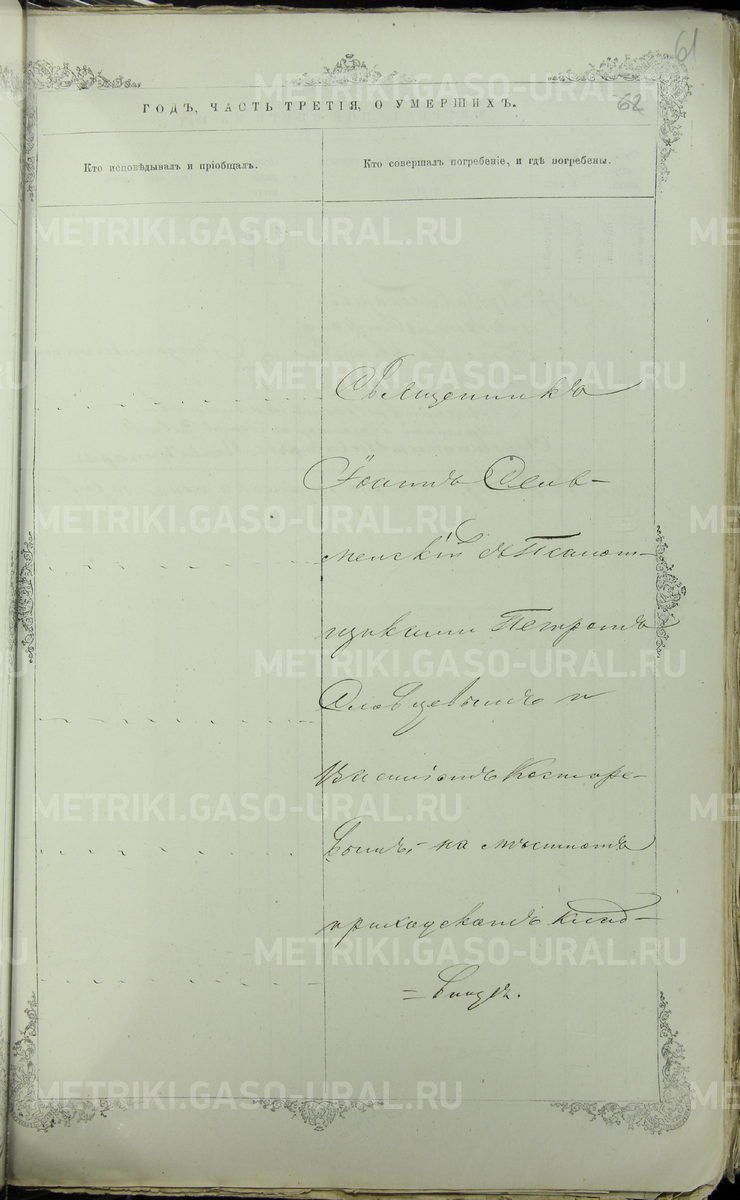 61
62
ГОДЪ, ЧАСТЬ ТРЕТІЯ, О УМЕРШИХЪ.
Кто исповѣдывалъ и пріобщалъ.
Кто совершалъ погребеніе, и гдѣ погребены.
METRIKI.GASO-URAL.RU
Священникъ
Іоаннъ
съ Псаломт-
щиками Петромъ
Словцевымъ и
Косторе-
вымъ, на мѣстномъ
приходскомъ клад-
=бищѣ.